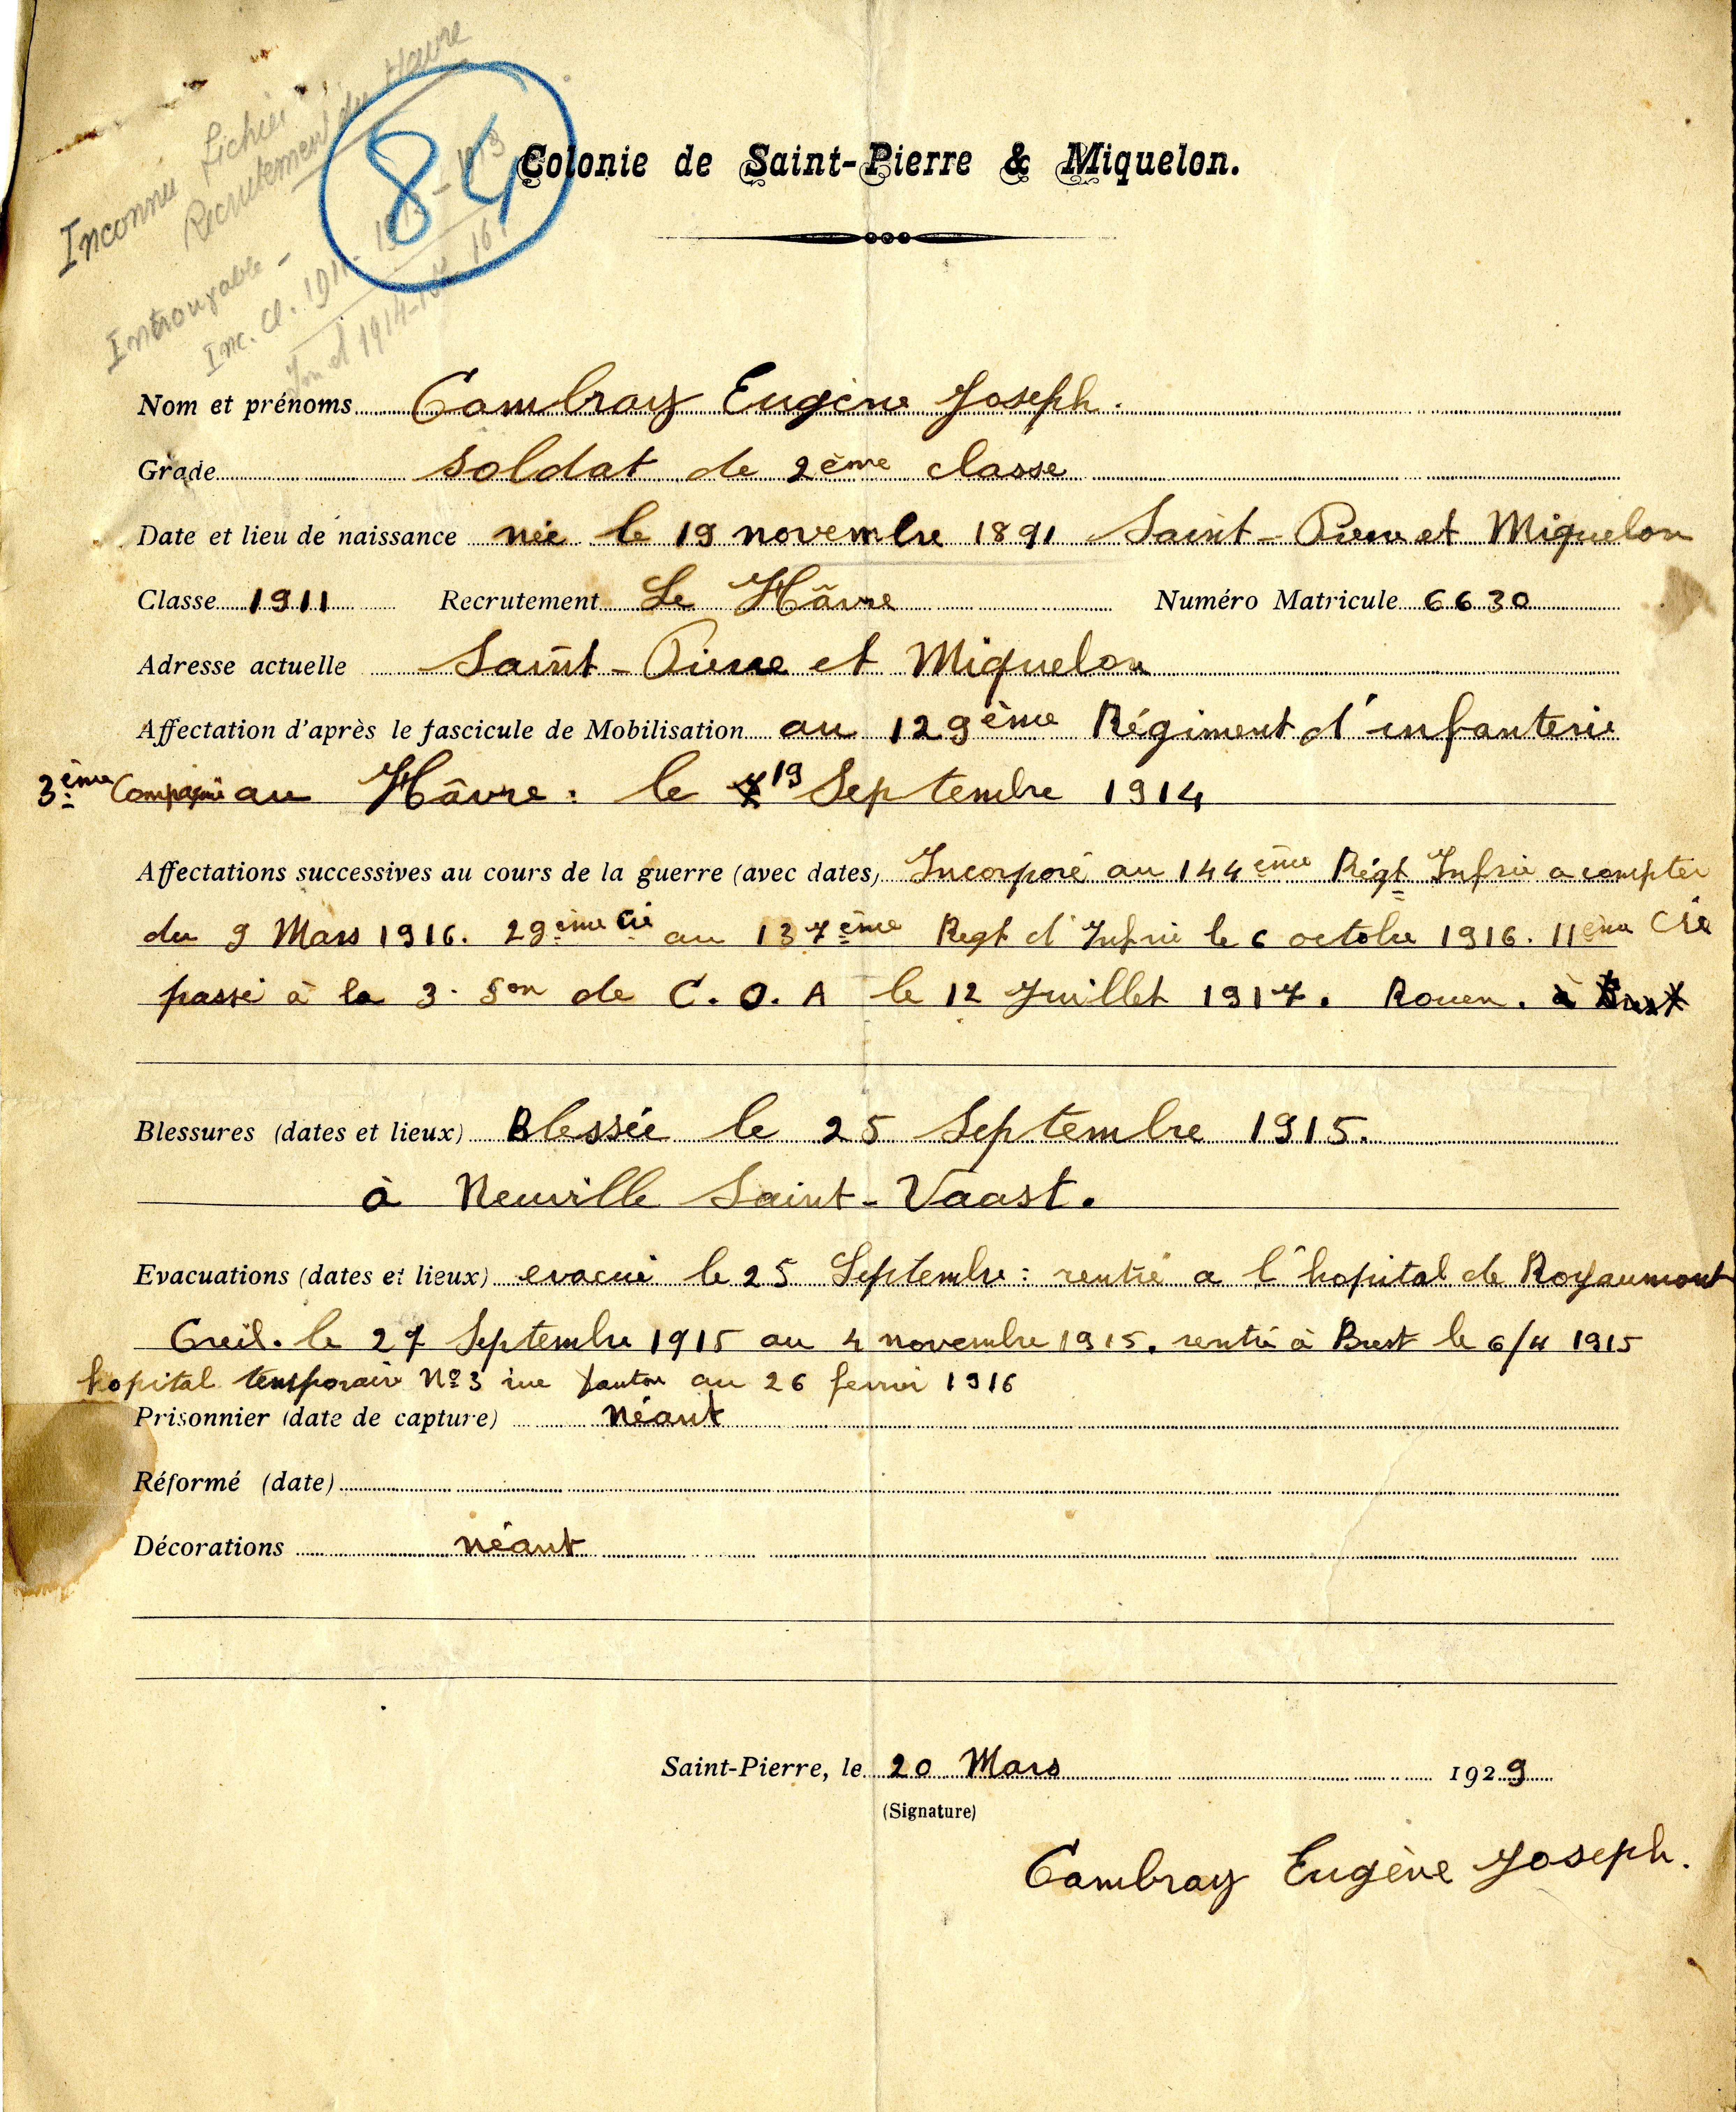 Inconnu fichier
Recrutement du Havre
Introuvable -
Inc. Cl. 1911 - 1913
84
Colonie de Saint-Pierre & Miquelon.
Nom et prénoms Cambray Eugène Joseph.
Grade soldat de 2ème classe
Date et lieu de naissance née le 19 novembre 1891 Saint-Pierre et Miquelon
Classe 1911 Recrutement Le Hâvre Numéro Matricule 6630
Adresse actuelle Saint-Pierre et Miquelon
Affectation d'après le fascicule de Mobilisation au 129ème Régiment d'infanterie
3ème Compagnie au Hâvre : le 19 Septembre 1914
Affectations successives au cours de la guerre (avec dates) Incorporé au 144ème Régt Infrie a compter
du 9 Mars 1916. 29ème Cie au 137ème Regt d'Infrie le 6 octobre 1916. 11ème Cie
passé à la 3. Son de C.O.A le 12 Juillet 1917. Rouen. à
Blessures (dates et lieux) Blessée le 25 Septembre 1915.
à Neuville Saint-Vaast.
Evacuations (dates et lieux) evacué le 25 Septembre : rentré a l'hopital de Royaumont
Creil. le 27 Septembre 1915 au 4 novembre 1915. rentré à Brest le 6/11 1915
hopital temporaire No 3 rue au 26 fevrier 1916
Prisonnier (date de capture) Néant
Réformé (date)
Décorations néant
Saint-Pierre, le 20 Mars 1929
(Signature)
Cambray Eugène Joseph.